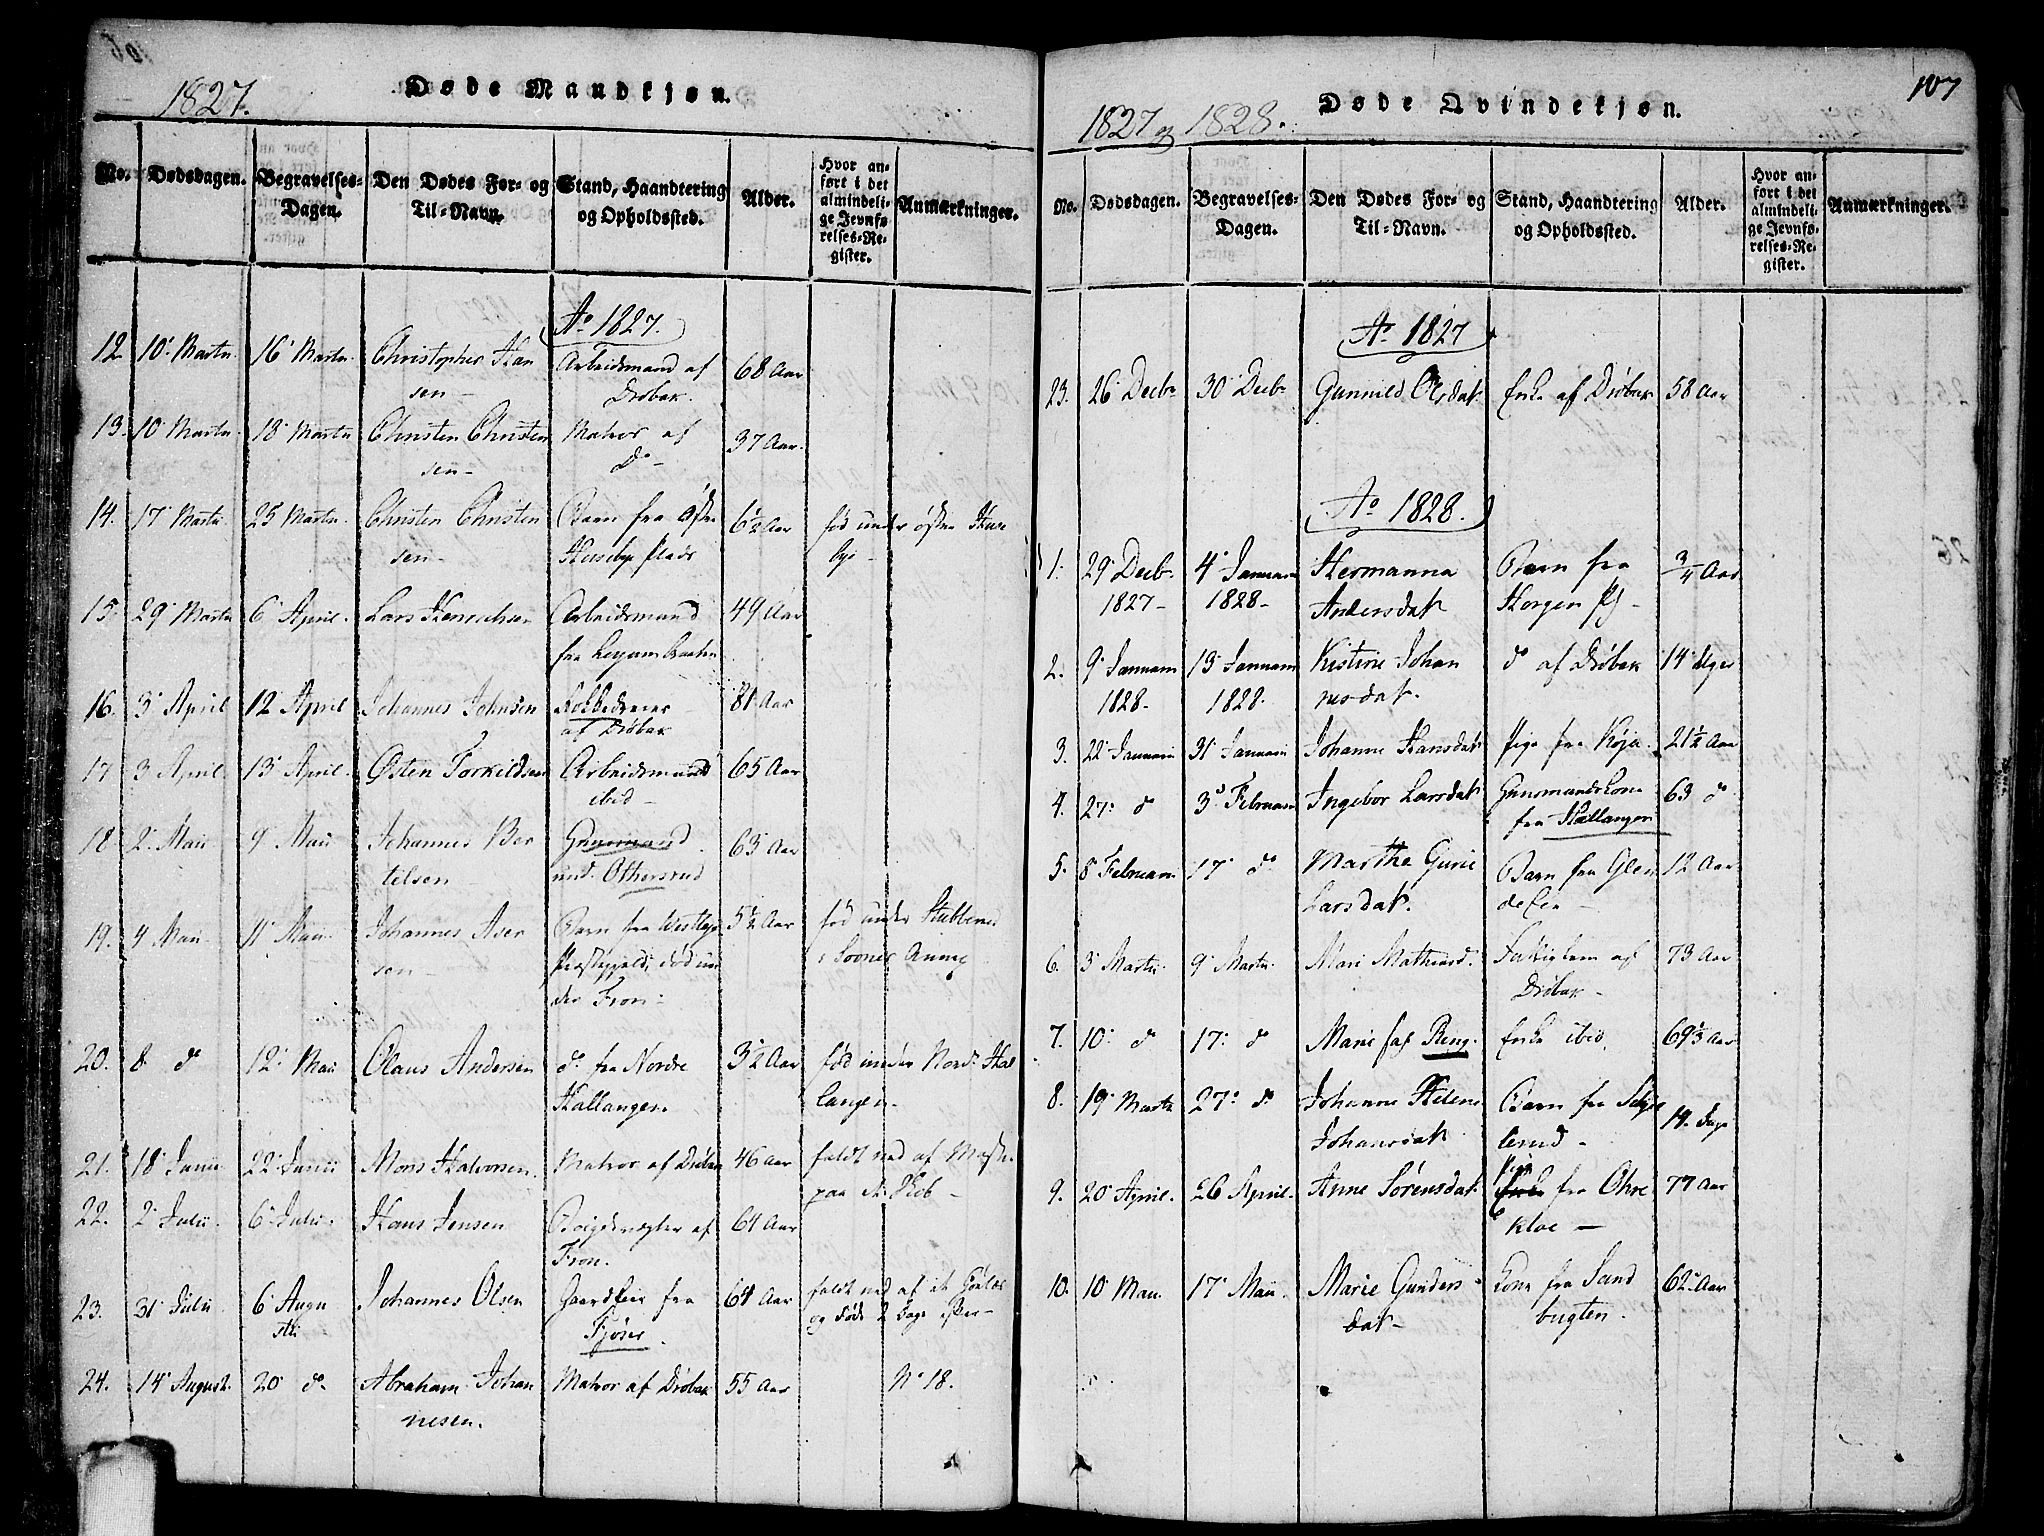 1827. Døde Mandkjøn.
No. Dødsdagen. Begravelses-Dagen. Den Dødes For- og Til-Navn. Stand, Haandtering og Opholdssted. Alder. Hvor anført i det almindelige Jevnførelses-Register. Anmærkninger.
Ao 1827.
12. 10 Martii. 16 Martii. Christopher Han Arbeidsmand af 68 Aar
sen Drøbak.
13. 10 Martii. 18 Martii Christen Christen Matros af 37 Aar.
sen do
14. 17 Martii. 25 Martii. Christen Christen Barn fra Østre 6½ Aar fød under østre Huse
sen Huseby Plads bye
15. 29 Martii 6 April. Lars Henrichsen Arbeidsmand 49 Aar
fra
16. 3 April 12 April Johannes Johnsen 81 Aar
af Drøbak
17 3 April. 13 April. Østen Torkildsen Arbeidsmand 65 Aar
ibid
18 2 Maii 9 Maii Johannes Ber Gaarmand 63 Aar
telsen und. Ottersrud
19. 4 Maii 11 Maii Johannes Aser Barn fra Westbye 5½ Aar fød under Stubberud
sen Præstegjeld, død un i Sooner Annex
der Fron
20. 8 do 12 Maii Olaus Andersen do fra Nordre 3½ Aar fød under Nord. Hal
Hallangen. langen
21. 18 Junii 22 Junii Mons Halvorsen. Matros af Drøbak 46 Aar faldt ned af Masten
paa
22. 2 Julii. 6 Julii. Hans Jensen af 64 Aar
Fron.
23. 31 Julii 6 Augu Johannes Olsen fra 64 Aar faldt ned af et
sti Fjøser og døde 2 Dage efter
24. 14 August. 20 do Abraham Johan Matros af Drøbak 55 Aar No 18.
nesen.
107
1827 og 1828. Døde Qvindekjøn.
No. Dødsdagen. Begravelses-Dagen. Den Dødes For- og Til-Navn. Stand, Haandtering og Opholdssted. Alder. Hvor anført i det almindelige Jevnførelses-Register. Anmærkninger.
Ao 1827
23. 26 Decbr 30 Decbr Gunnild Olsdat. Enke af Drøbak 58 Aar
Ao 1828.
1. 29 Decbr. 4 Januarii Hermanna Barn fra ¾ Aar
1827 1828 Andersdat. Horgen
2. 9 Januarii 13 Januarii Kistine Johan do af Drøbak 14 Uger
1828. 1828. nesdat.
3. 22 Januarii 31 Januarii Johanne Hansdat. Pige fra Køja. 21½ Aar
4. 27 do 3 Februarii Ingebor Larsdat. Gaarmandskone 63 do
fra Hallangen
5. 8 Februarii 17 do Marthe Gurie Barn fra Glen 12 Aar
Larsdat.
6. 3 Martii 9 Martii. Mari Mathisd. Fattiglem af 73 Aar
Drøbak
7. 10 do 17 do Marie fød Ring. Enke ibid. 69 Aar
8. 19 Martii 27 do Johanne Helene Barn fra 14 Dage
Johansdat. lerud
9. 20 April. 26 April. Anne Sørensdat. Pige fra Ohre 77 Aar
kloe
10. 10 Maii 17 Maii Marie Gunders Kone fra Sand 62 Aar
dat bugten.